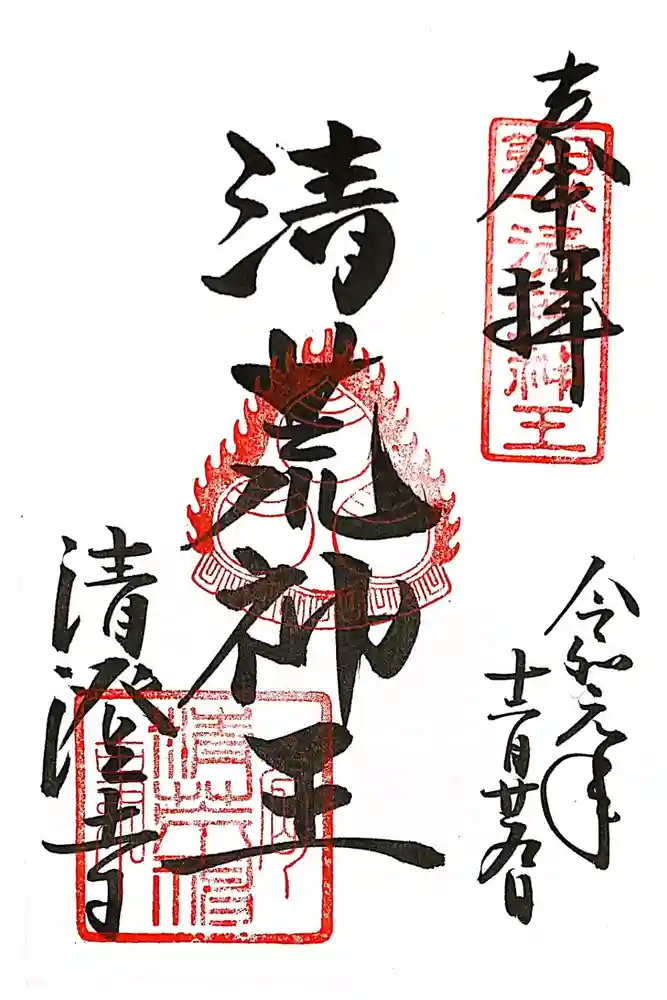 奉拝
令和元年
十二月廿九日
清荒神王
清澄寺